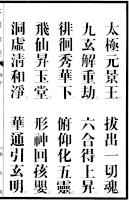 太極元景王 拔出一切魂
九玄解重劫 六合得上昇
徘徊秀華下 俯仰化五靈
飛仙昇玉堂 形神回孩嬰
洞虛清和淨 華通引玄明